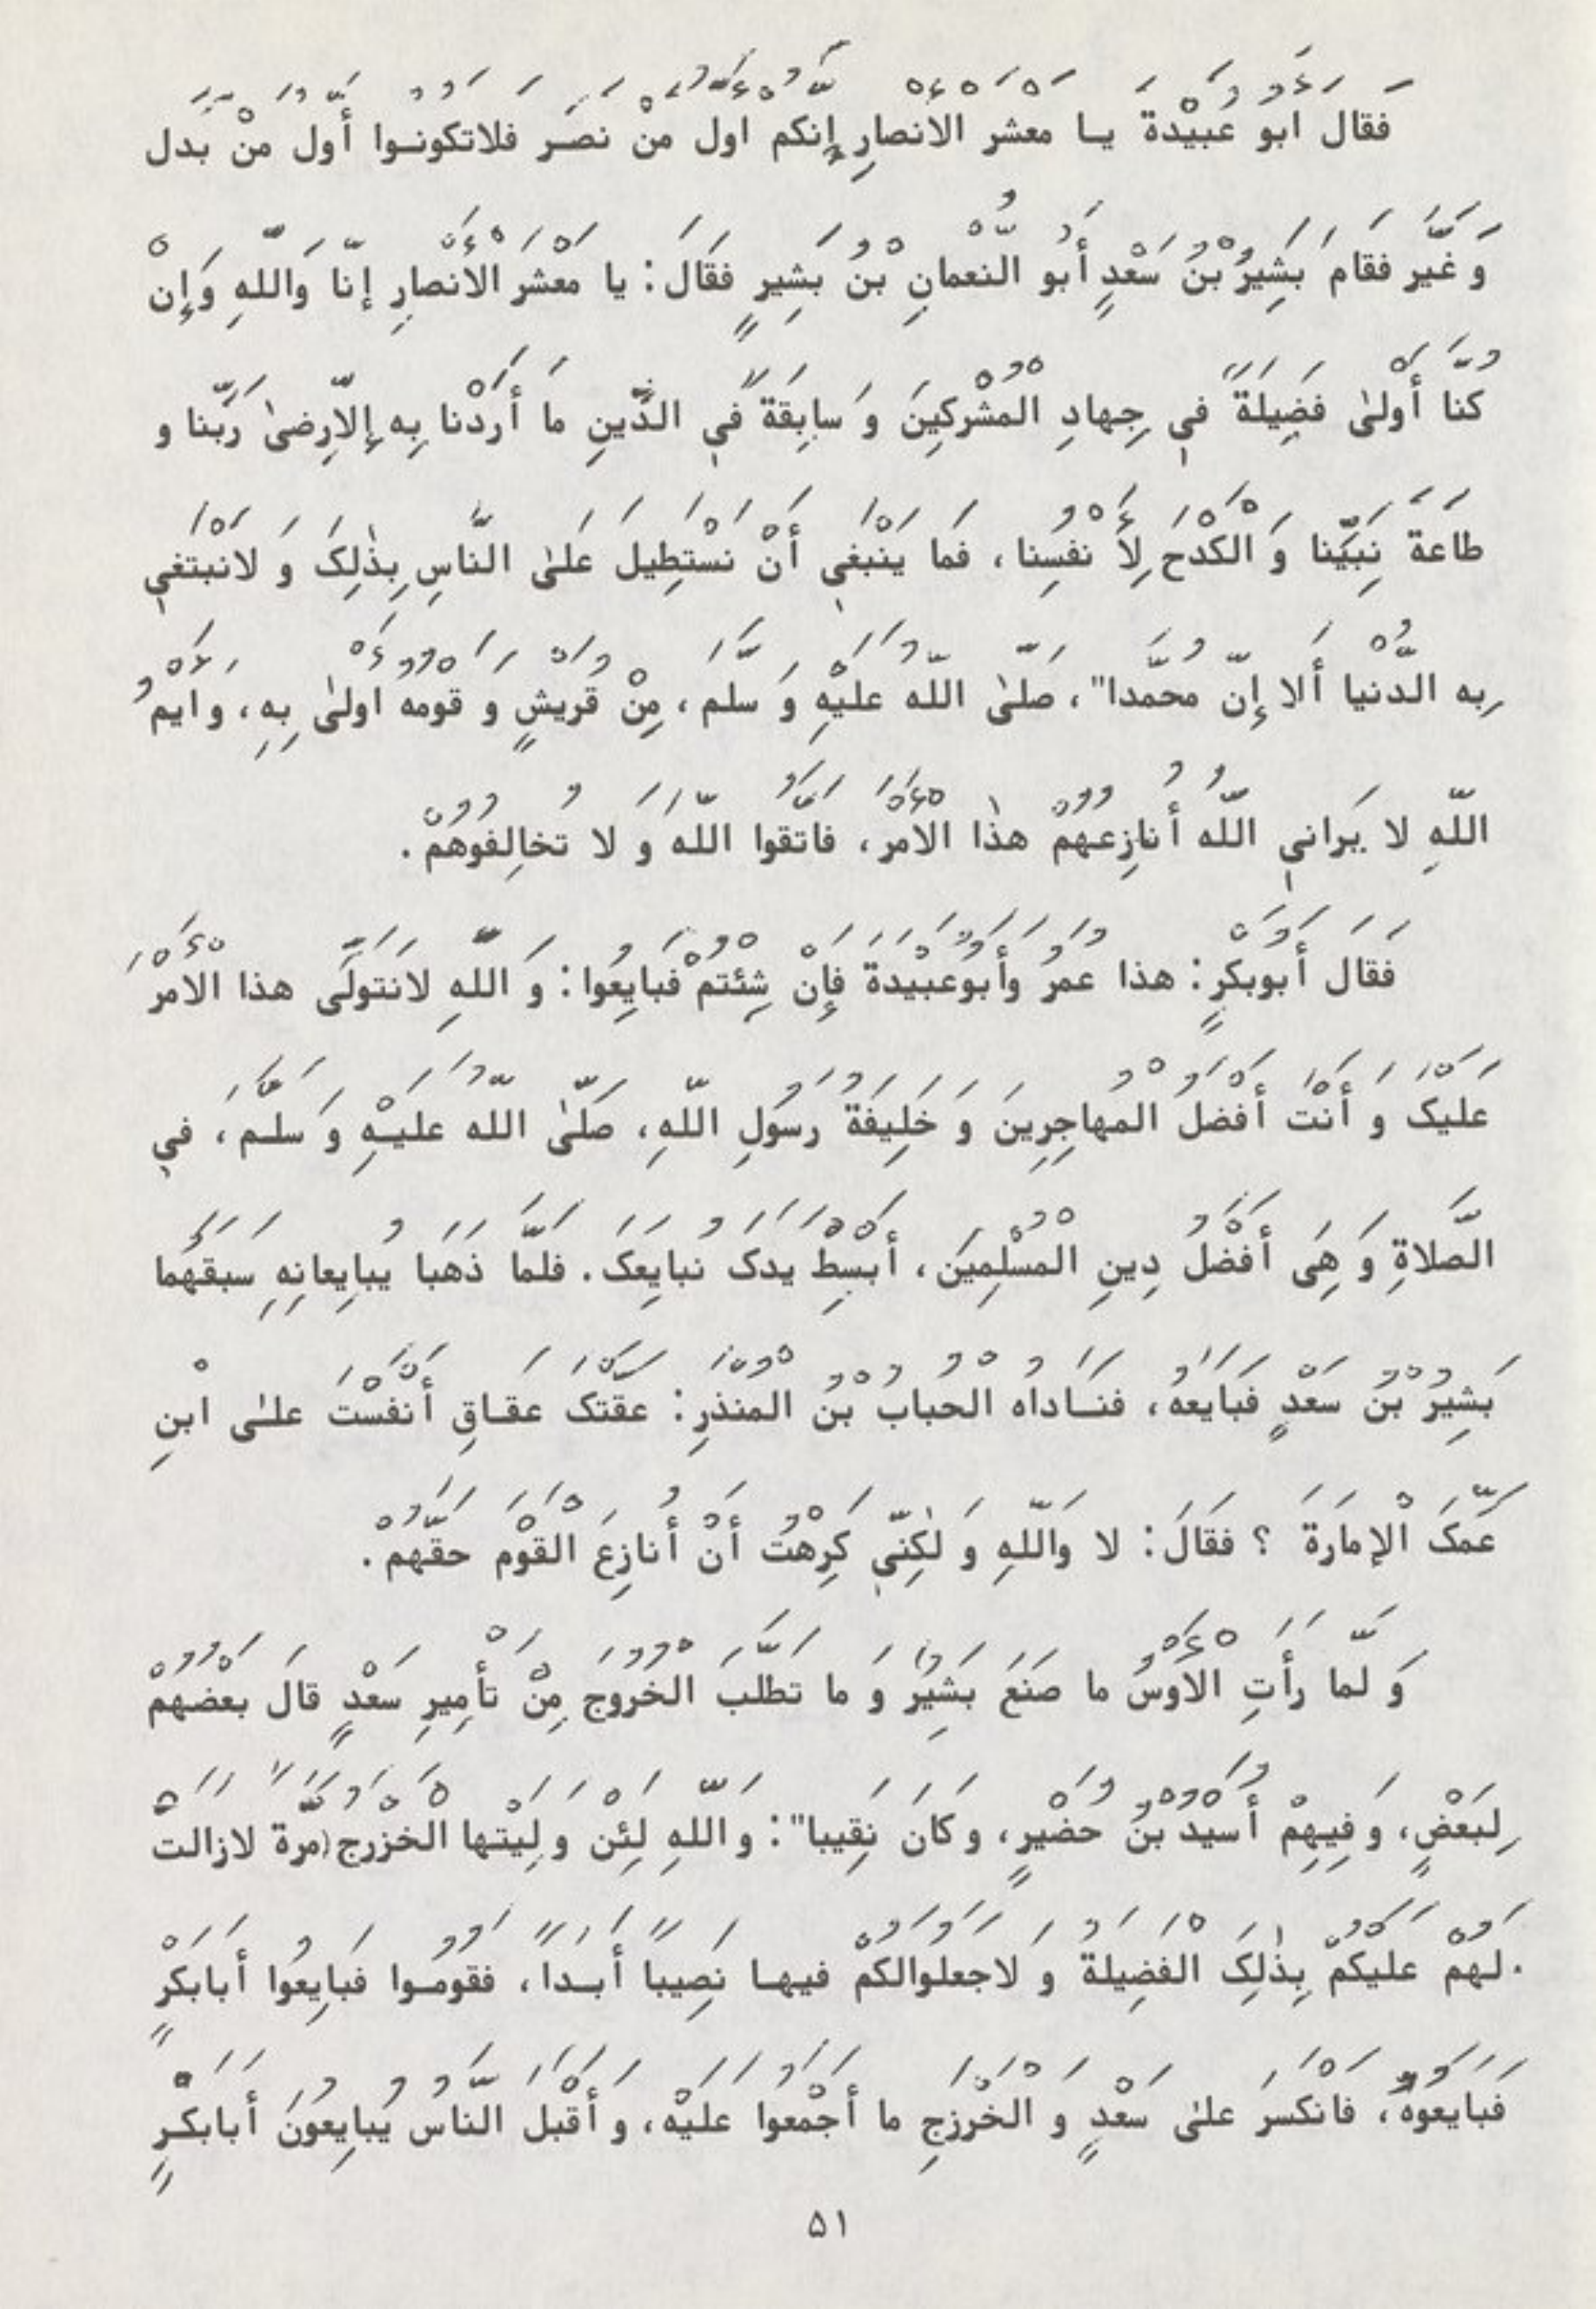 فَقَالَ أَبُو عُبَيْدَةَ يَا مَعْشَرَ الْأَنْصَارِ إِنَّكُمْ أَوَّلُ مَنْ نَصَرَ فَلَا تَكُونُوا أَوَّلَ مَنْ بَدَّلَ
وَ غَيَّرَ فَقَامَ بَشِيرُ بْنُ سَعْدٍ أَبُو النُّعْمَانِ بْنُ بَشِيرٍ فَقَالَ: يا مَعْشَرَ الْأَنْصارِ إنّا وَاللَّهِ وَإِنْ
كُنَّا أَوْلىٰ فَضِيلَةً فِي جِهادِ الْمُشْرِكِينَ وَ سابِقَةً فِي الدِّينِ مَا أَرَدْنَا بِهِ إِلّا رِضىٰ رَبِّنا و
طاعَةَ نَبِيِّنا وَ الْكَدْحَ لِأَ نْفُسِنا، فَما يَنْبَغِي أَنْ نَسْتَطِيلَ عَلَىٰ النَّاسِ بِذٰلِکَ وَ لانَبْتَغِي
بِهِ الدُّنْيا أَلا إِنَّ مُحَمَّدا"، صَلَّىٰ اللّهُ عَلَيْهِ وَ سَلَّم، مِنْ قُرَيْشٍ و قَوْمُهُ أَوْلىٰ بِهِ، وَ ايْمُ
اللّهِ لا يَرانِي اللّهُ أُنازِعُهُمْ هذٰا الْأَمْرَ، فَاتَّقُوا اللّهَ و لا تُخالِفُوهُمْ.
فَقَالَ أَبُوبَكْرٍ: هذا عُمَرُ وَأَبُوعُبَيْدَةَ فَإِنْ شِئْتُمْ فَبايِعُوا: وَ اللَّهِ لانَتَوَلَّى هذا الْأَمْرَ
عَلَيْکَ وَ أَنْتَ أَفْضَلُ الْمُهاجِرِينَ وَ خَلِيفَةُ رَسُولِ اللّهِ، صَلَّىٰ اللّهُ عَلَيْهِ وَ سَلَّم، فِي
الصَّلاةِ وَ هِيَ أَفْضَلُ دِينِ الْمُسْلِمِينَ، أَبْسِطْ يَدَکَ نُبايِعَکَ. فَلَمَّا ذَهَبا يُبايِعانِهِ سَبَقَهُما
بَشِيرُ بْنُ سَعْدٍ فَبايَعَهُ، فَنَاداهُ الْحُبابُ بْنُ الْمُنْذِرِ: عَقَّتْکَ عَقاقِ أَنَفْسْتَ عَلىٰ ابْنِ
عَمِّکَ الْإِمارَةَ ؟ فَقَالَ: لا وَاللّهِ وَ لٰکِنِّي كَرِهْتُ أَنْ أُنازِعَ الْقَوْمَ حَقَّهُمْ.
وَ لَمّا رَأَتِ الْأَوْسُ ما صَنَعَ بَشِيرُ وَ ما تَطَلَّبَ الْخُرُوجَ مِنْ تَأْمِيرِ سَعْدٍ قالَ بَعْضُهُمْ
لِبَعْضٍ، وَ فِيهِمْ أُسَيْدُ بْنُ حُضَيْرٍ، وَ كانَ نَقِيبا": وَ اللّهِ لَئِنْ وَلِيَتْها الْخَزْرَجُ (مَرَّةً لازالَتْ
لَهُمْ عَلَيْكُمْ بِذٰلِکَ الْفَضِيلَةُ وَ لاجَعَلُوالَكُمْ فِيها نَصِيباً أَبَداً، فَقُومُوا فَبايِعُوا أَبابَكْرٍ
فَبايَعُوهُ، فَانْكَسَرَ عَلىٰ سَعْدٍ وَ الْخَزْرَجِ ما أَجْمَعُوا عَلَيْهِ، وَ أَقْبَلَ النَّاسُ يُبايِعُونَ أَبابَكْرٍ
۵۱